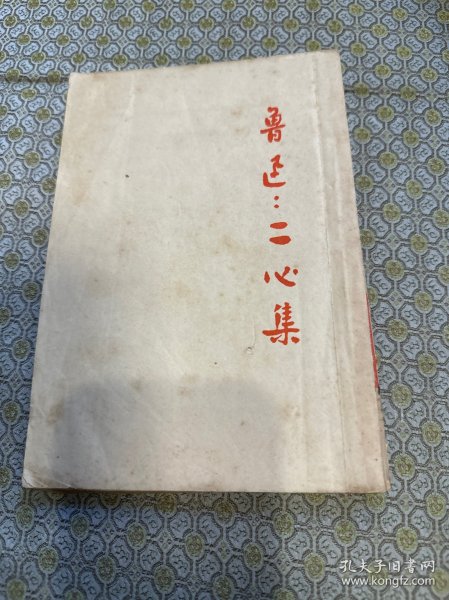 鲁迅:二心集
孔夫子旧书网
www.kongfz.com